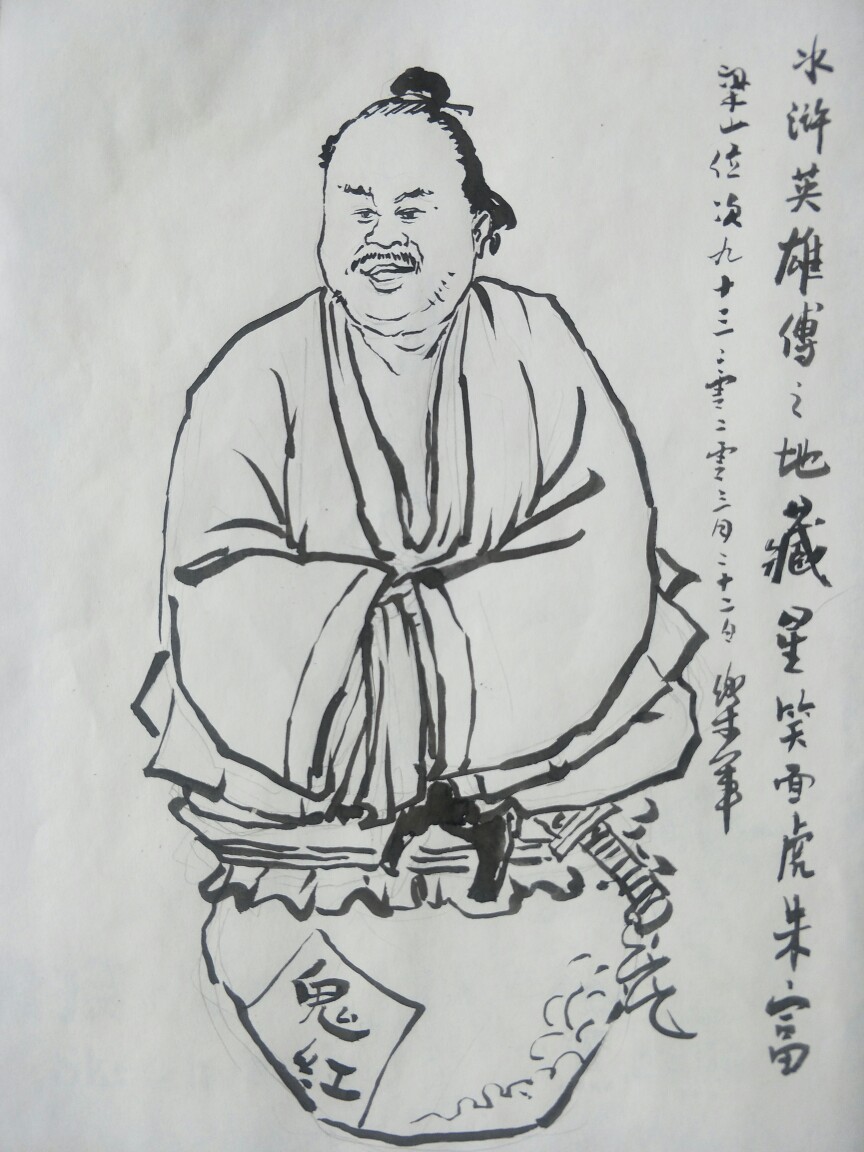 水浒英雄傳之地藏星笑面虎朱富
梁山位次九十三二零二零三月二十二日
鬼紅